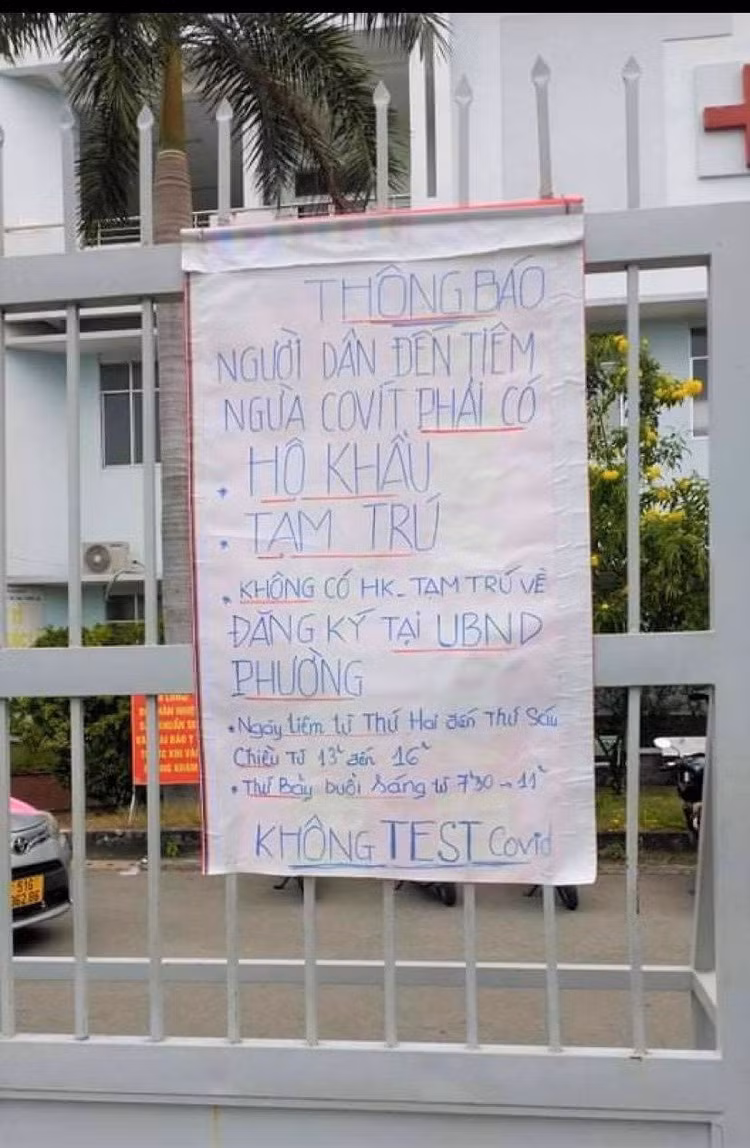 THÔNG BÁO
NGƯỜI DÂN ĐẾN TIÊM
NGỪA COVÍT PHẢI CÓ
HỘ KHẨU
TẠM TRÚ
KHÔNG CÓ HK_ TẠM TRÚ VỀ
ĐĂNG KÝ TẠI UBND
PHƯỜNG
Ngày tiêm từ Thứ Hai đến Thứ Sáu
Chiều Từ 13h đến 16h
Thứ Bảy buổi sáng từ 7h30 → 11h
KHÔNG TEST Covid
51G